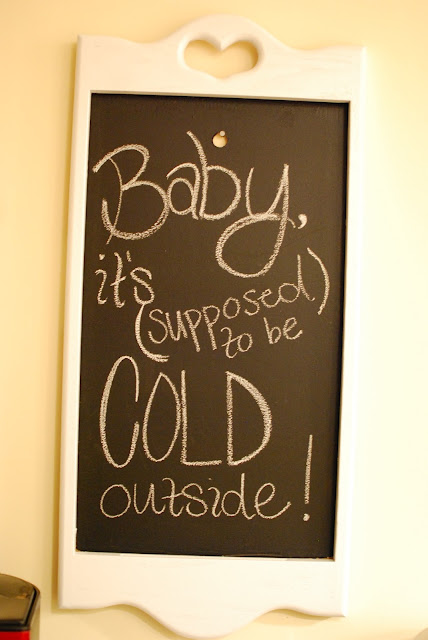 Baby,
it's
(supposed)
to be
COLD
outside!